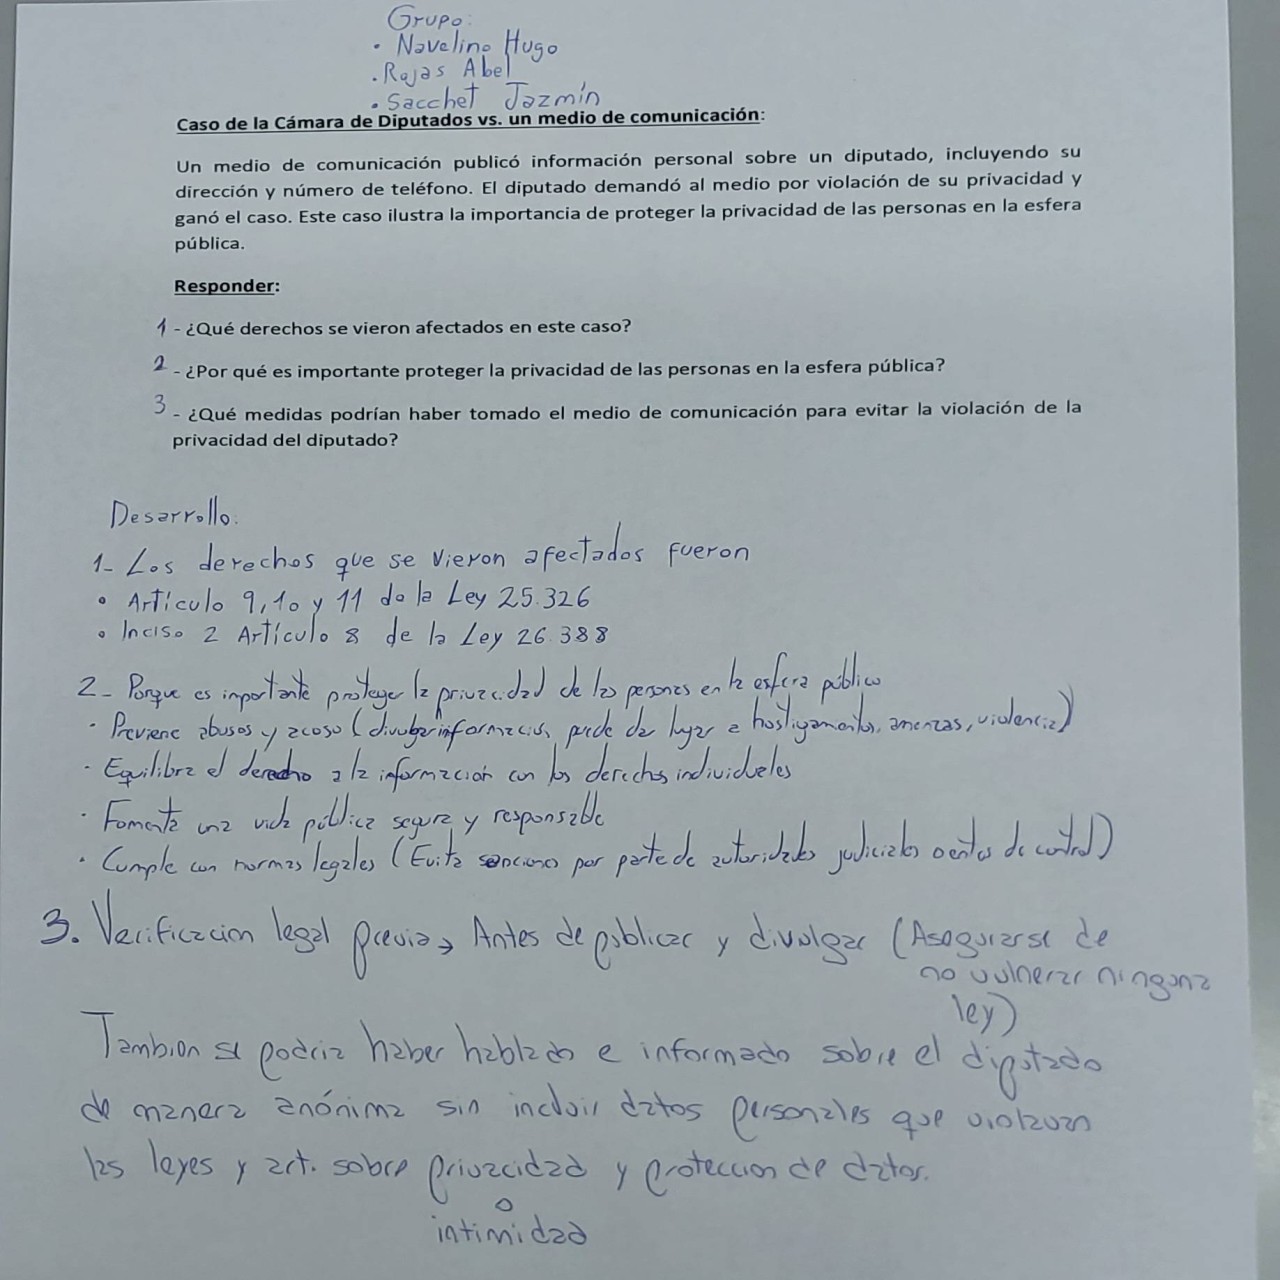 Grupo:
• Navelino Hugo
• Rojas Abel
• Sacchet Jazmín
Caso de la Cámara de Diputados vs. un medio de comunicación:
Un medio de comunicación publicó información personal sobre un diputado, incluyendo su
dirección y número de teléfono. El diputado demandó al medio por violación de su privacidad y
ganó el caso. Este caso ilustra la importancia de proteger la privacidad de las personas en la esfera
pública.
Responder:
1 - ¿Qué derechos se vieron afectados en este caso?
2 - ¿Por qué es importante proteger la privacidad de las personas en la esfera pública?
3 - ¿Qué medidas podrían haber tomado el medio de comunicación para evitar la violación de la
privacidad del diputado?
Desarrollo:
1- Los derechos que se vieron afectados fueron
• Artículo 9, 10 y 11 de la Ley 25.326
• Inciso 2 Artículo 8 de la Ley 26.388
2- Porque es importante proteger la privacidad de las personas en la esfera público
• Previene abusos y acoso (divulgar información puede dar lugar a hostigamientos, amenzas, violencia)
• Equilibra el derecho a la información con los derechos individuales
• Fomenta una vida pública segura y responsable
• Cumple con normas legales (Evita sanciones por parte de autoridades judiciales o entes de control)
3. Verificacion legal previa → Antes de publicar y divulgar (Asegurarse de
no vulnerar ninguna
ley)
Tambien se podria haber hablado e informado sobre el diputado
de manera anónima sin incluir datos personales que violaran
las leyes y art. sobre privacidad y proteccion de datos.
o
intimidad